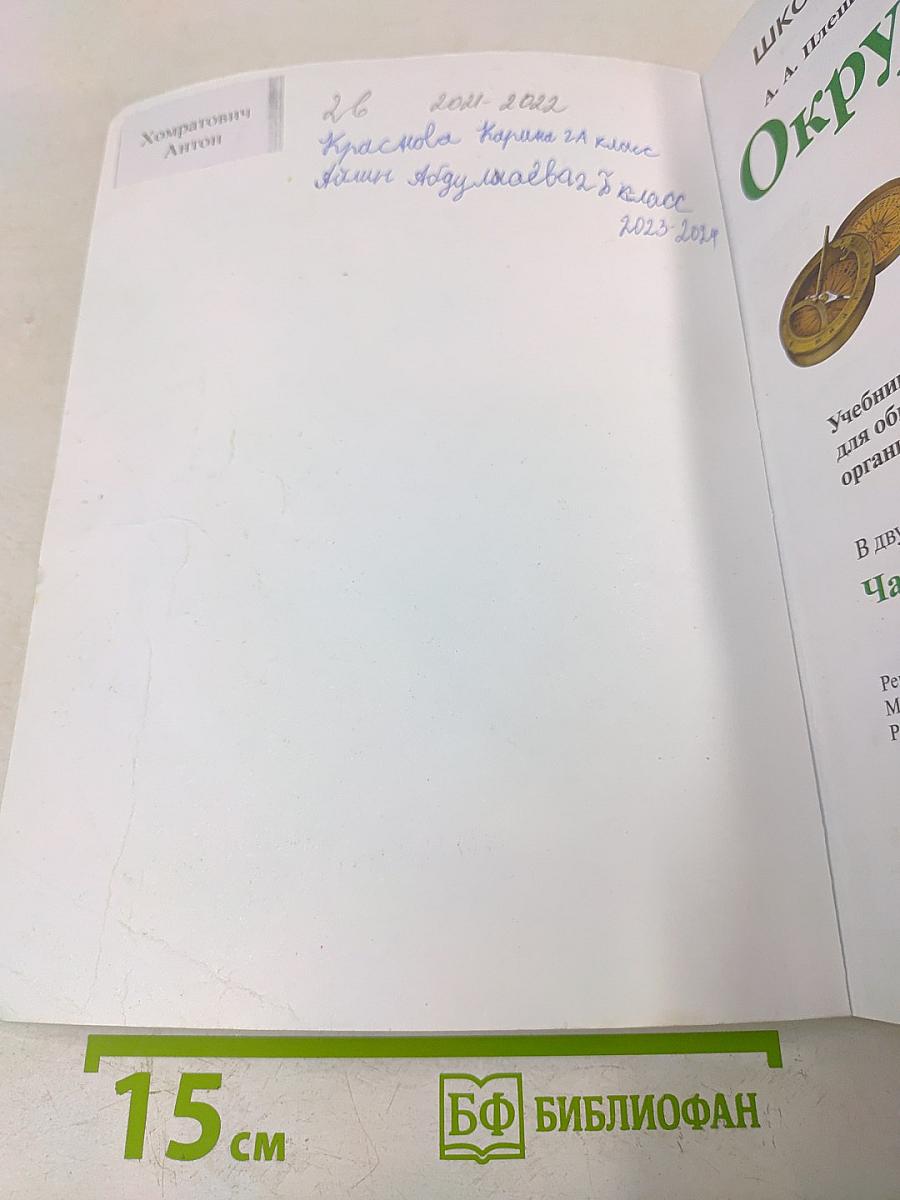 Хомратович
Антон
2в 2021-2022
Краснова Карина 2А класс
Айлин Абдуллаева 2Б класс
2023-2024
ШКО
А. А. Плеш
Окру
Учебни
для об
орган
В дву
Ча
Ре
М
Р
15 см
БФ БИБЛИОФАН